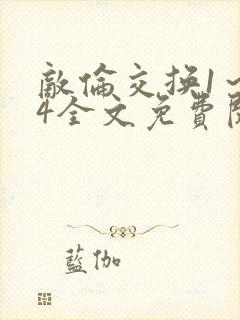 敵倫交换1~
4全文免費閱
藍伽